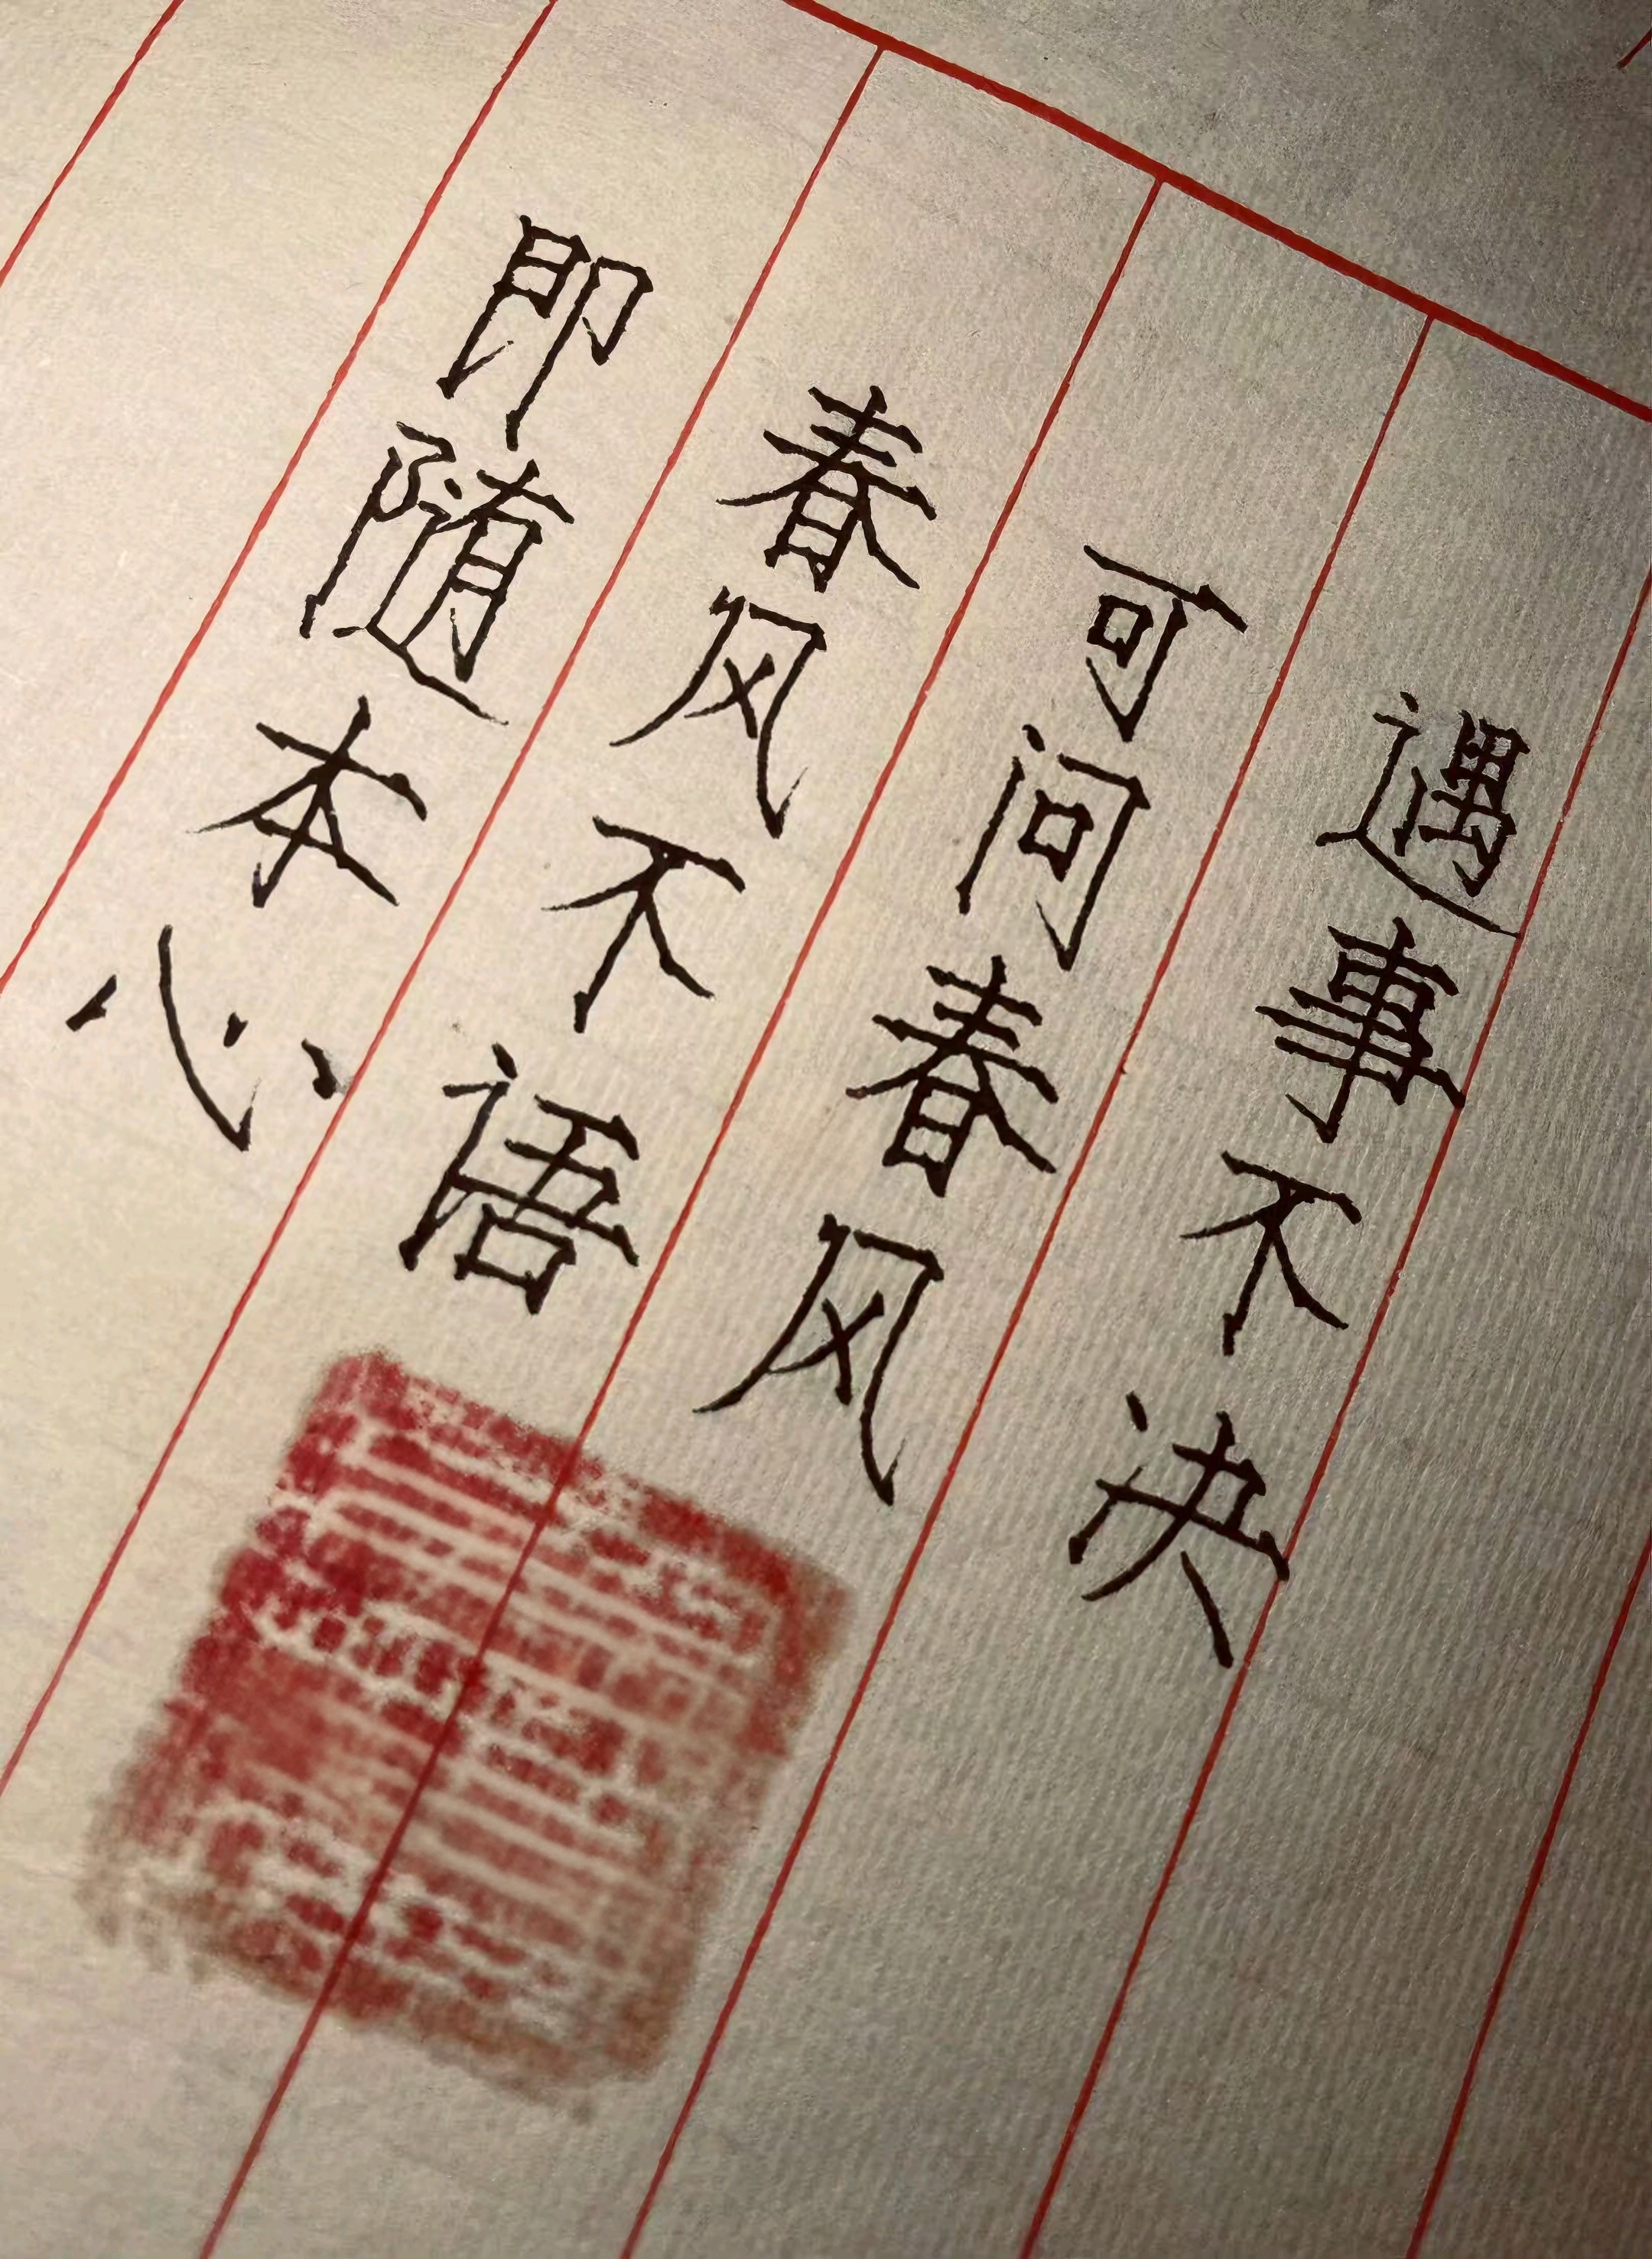 遇事不决
可问春风
春风不语
即随本心